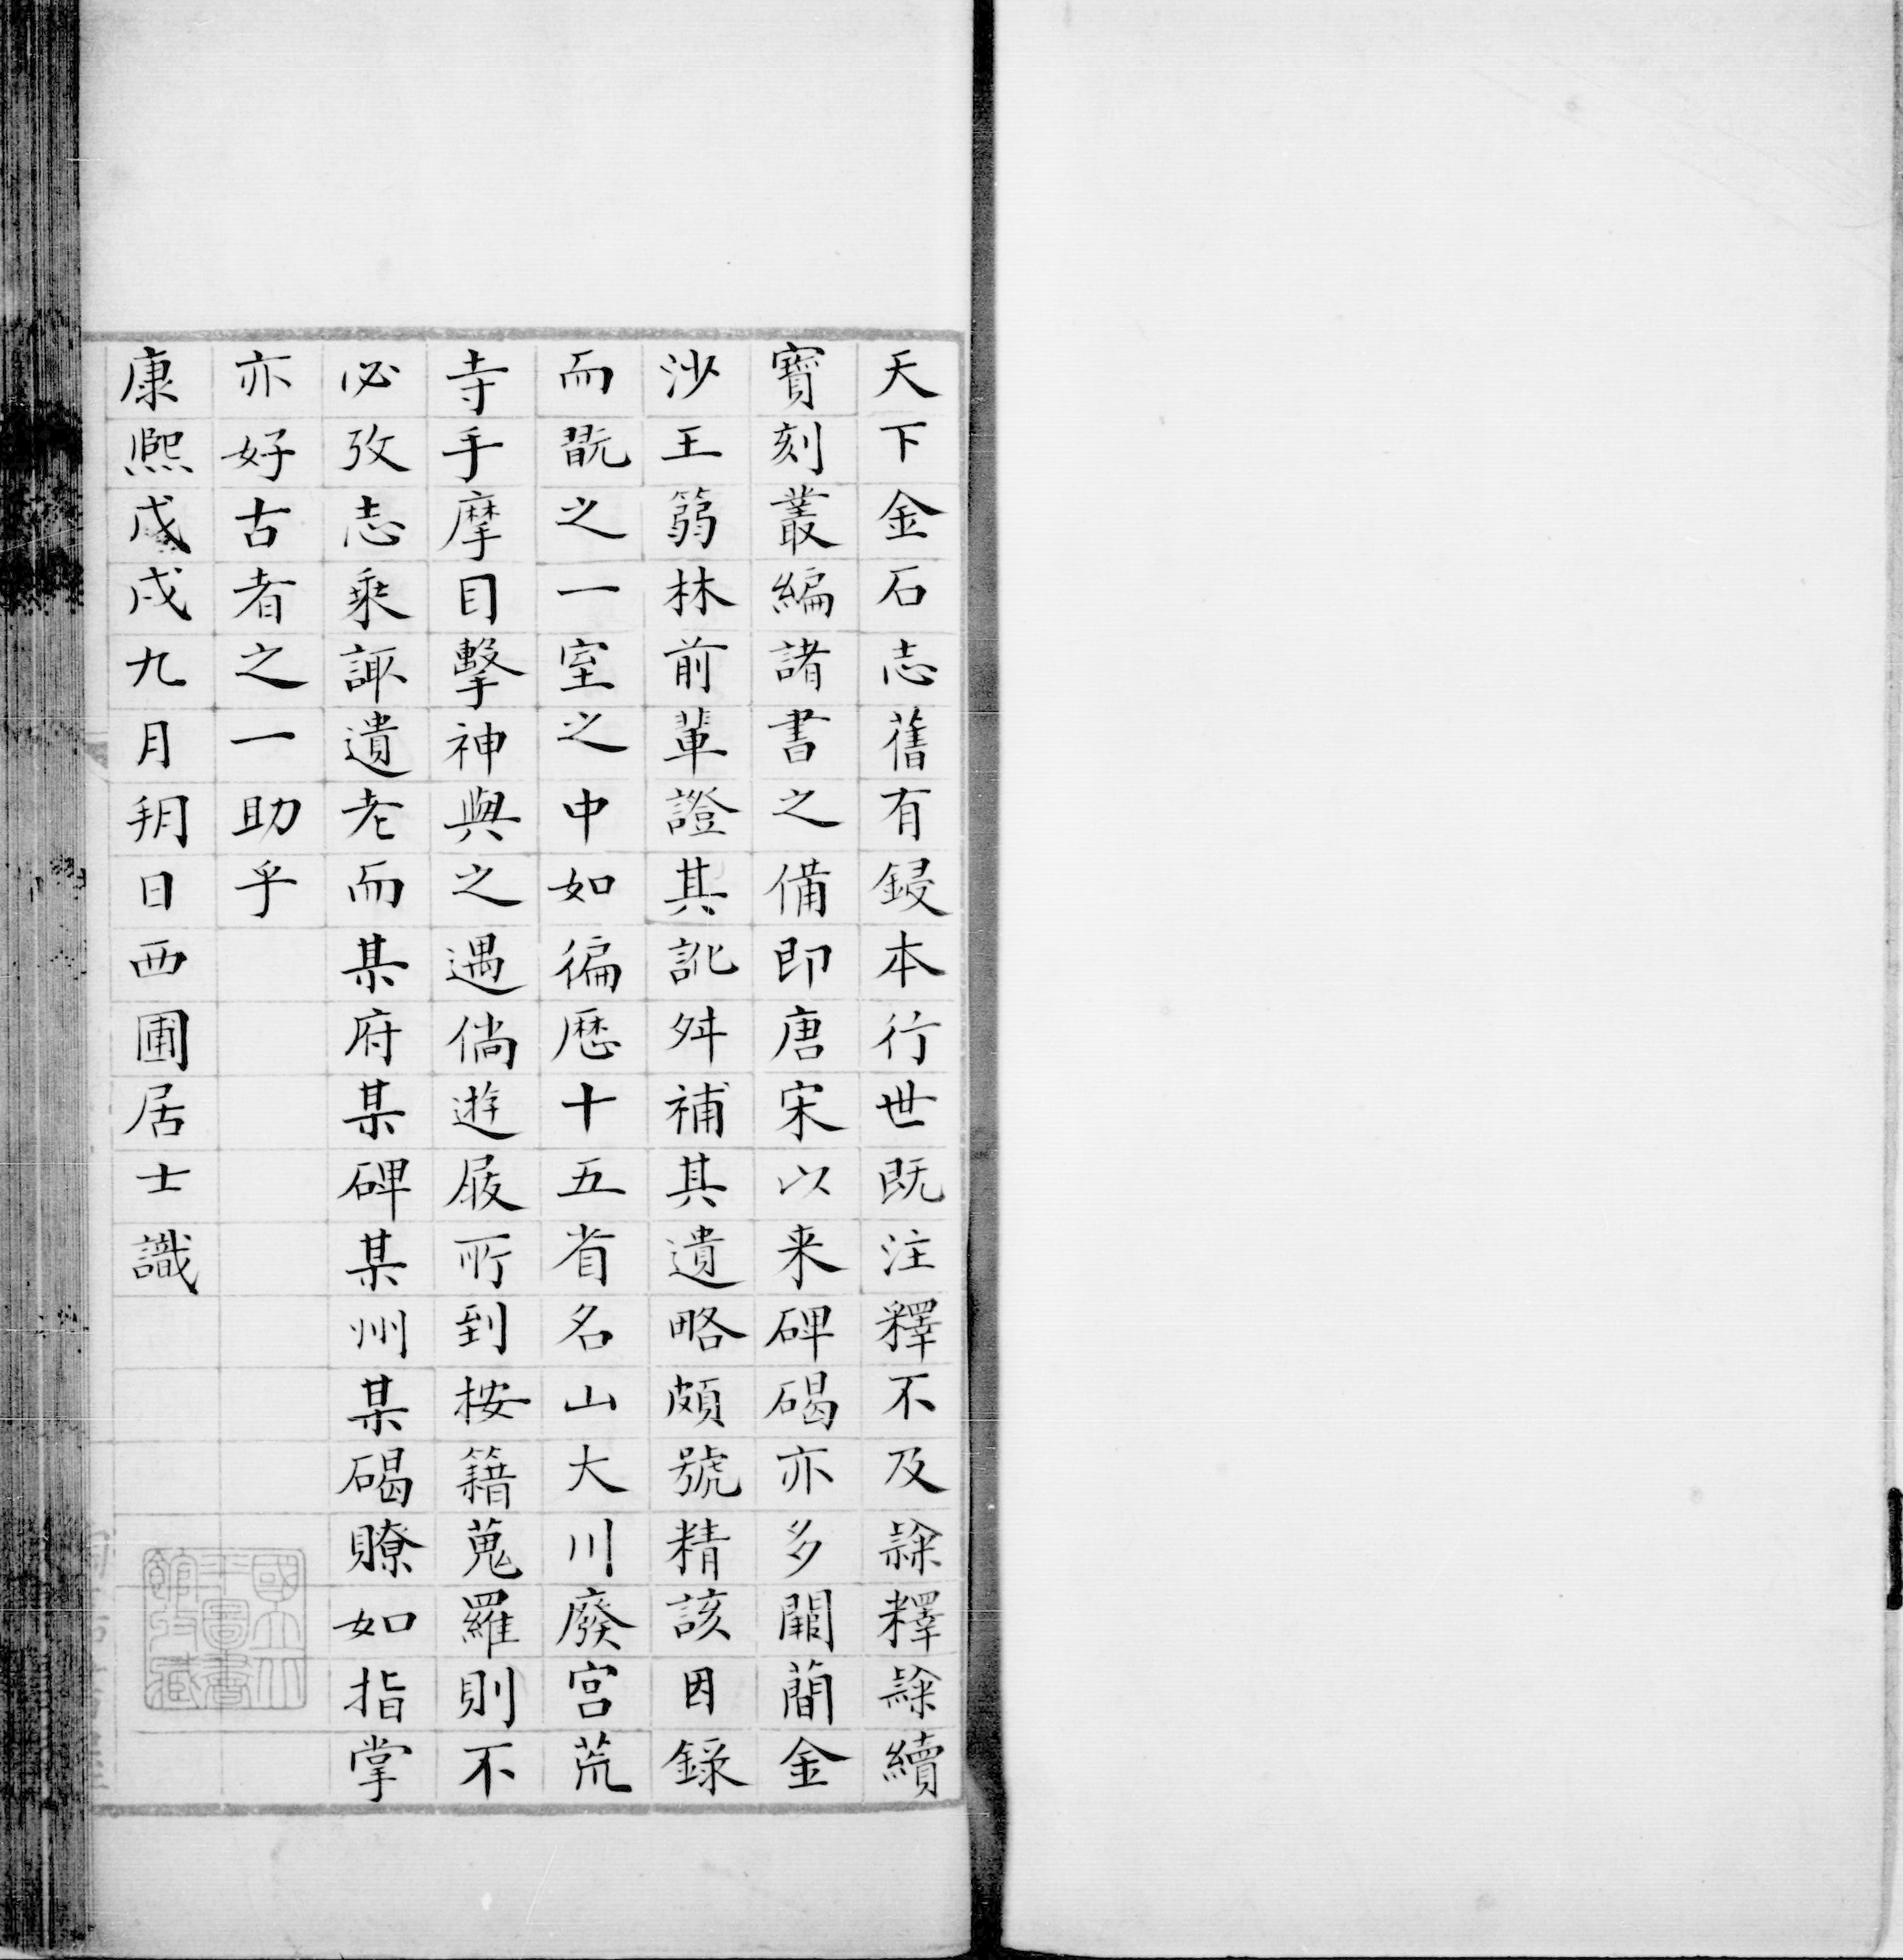 天下金石志舊有鋟本行世既注釋不及隸釋隸續
寶刻叢編諸書之備即唐宋以来碑碣亦多闕蕳金
沙王篛林前輩證其訛舛補其遺略頗號精該因錄
而翫之一室之中如徧歷十五省名山大川廢宫荒
寺手摩目擊神與之遇倘遊屐所到按籍蒐羅則不
必攷志乘諏遺老而某府某碑某州某碣瞭如指掌
亦好古者之一助乎
康熙戊戌九月朔日西圃居士識
國立北
平圖書
館收藏